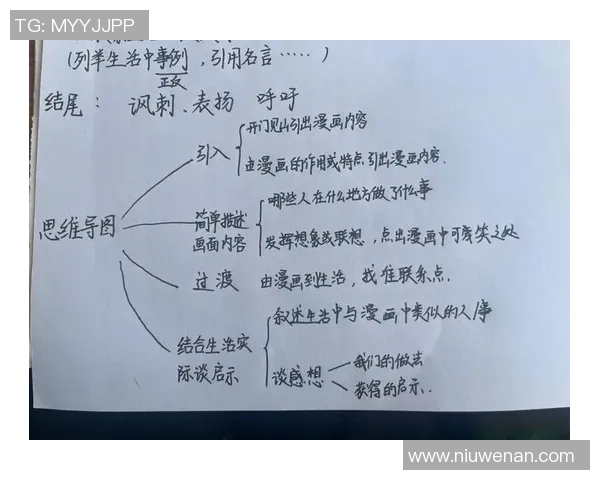 TG: MYYJJPP
(列举生活中事例，引用名言……)
正反
结尾： 讽刺、表扬 呼吁
思维导图
引入
开门见山引出漫画内容
由漫画的作用或特点引出漫画内容.
简单描述
画面内容
哪些人在什么地方做了什么事
发挥想象或联想，点出漫画中可笑之处
过渡 由漫画到生活，找准联系点.
结合生活实
际谈启示
叙述生活中与漫画中类似的人事
谈感想
我们的做法
获得的启示.
www.niuwenan.com